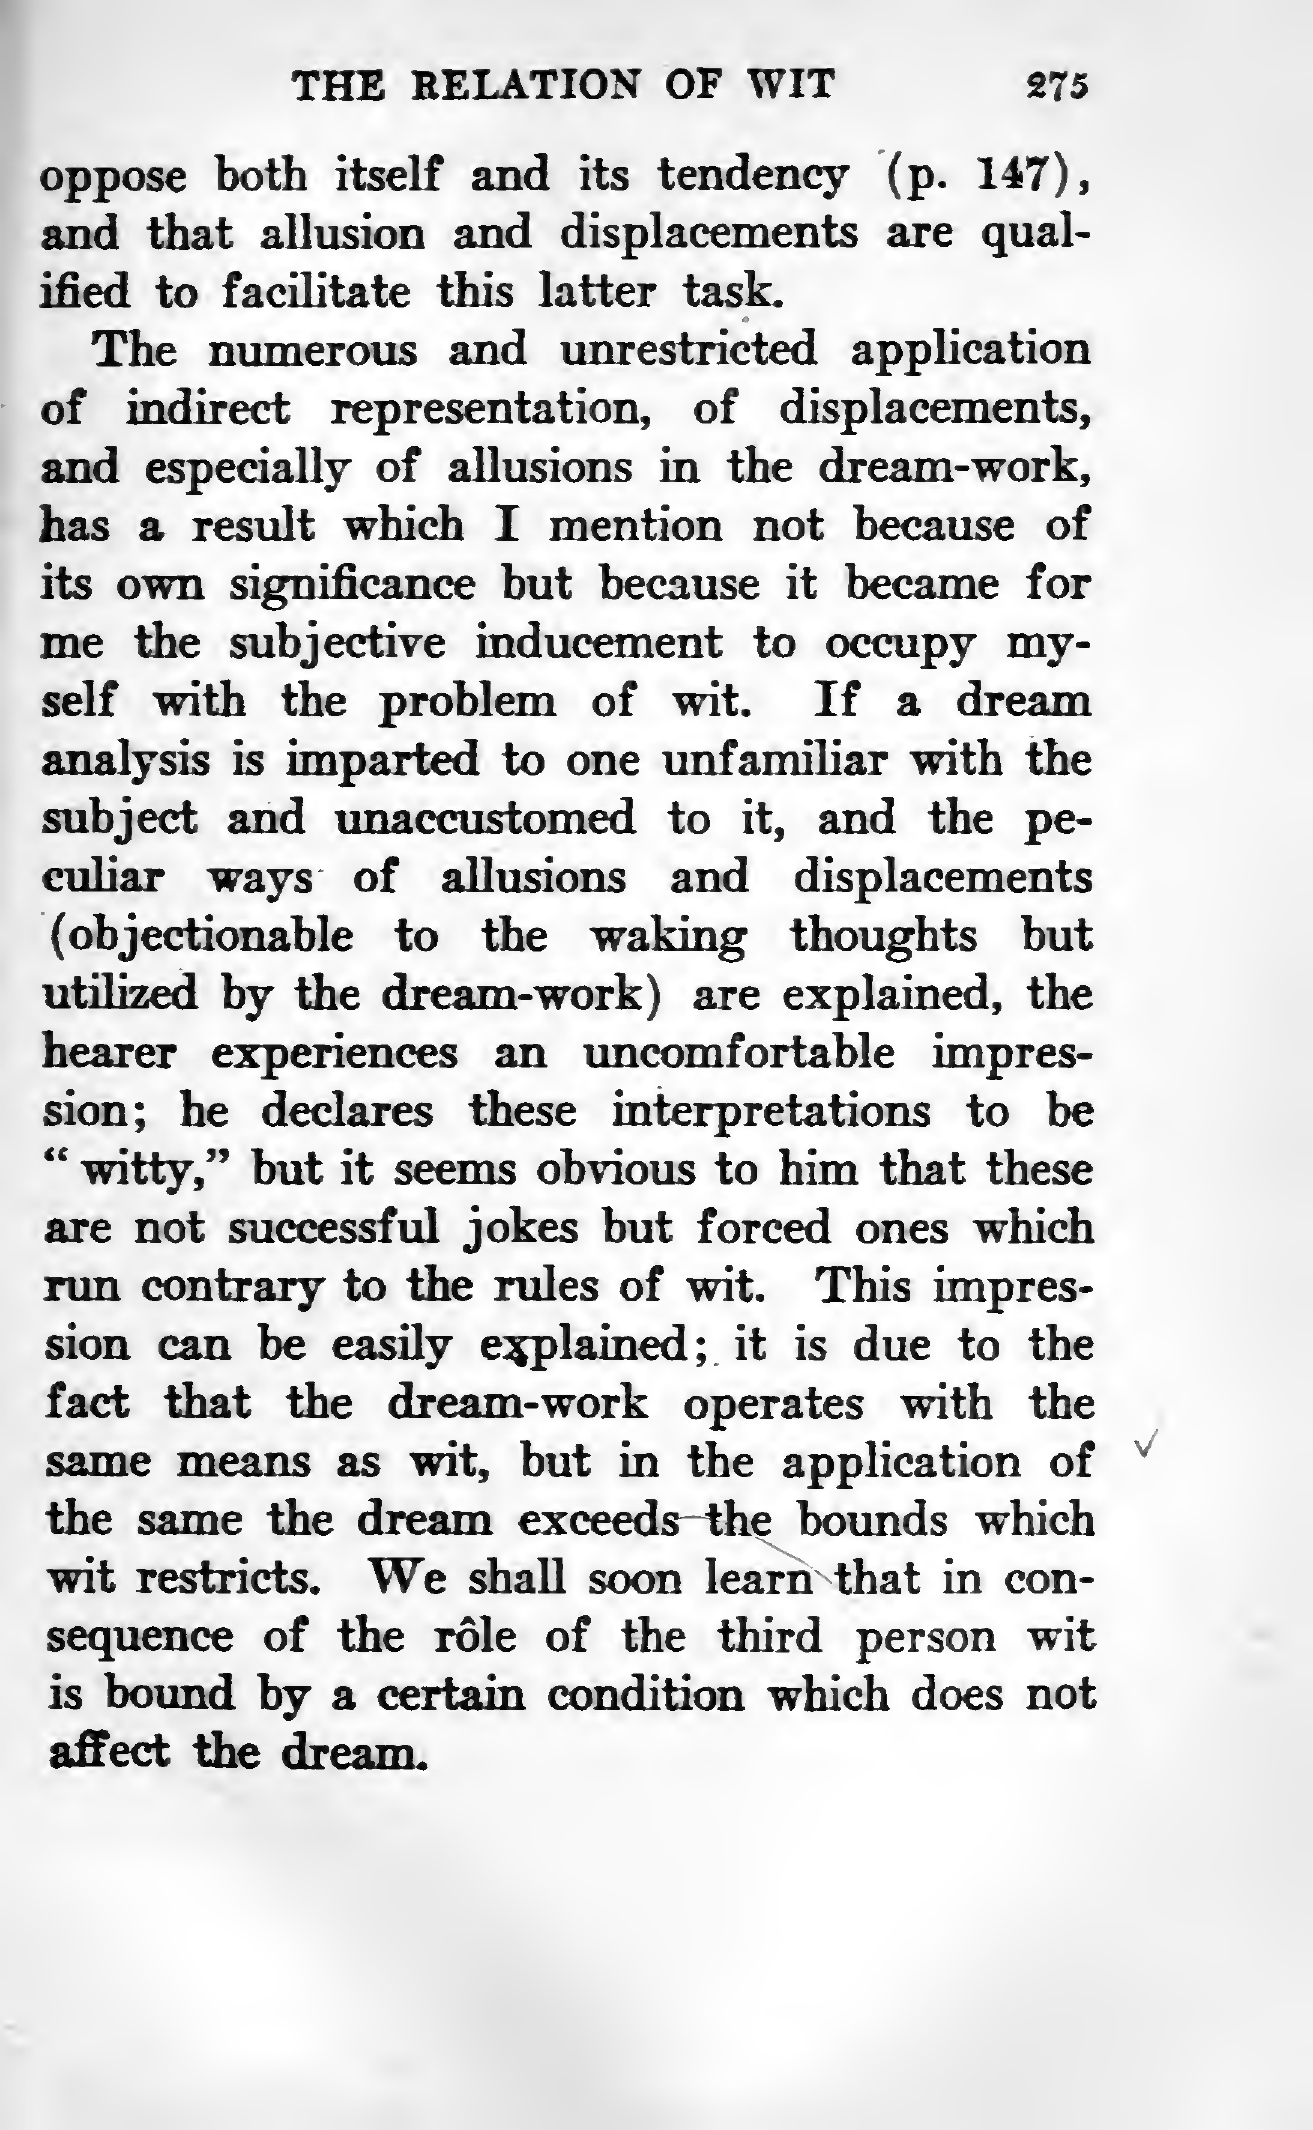 THE RELATION OF WIT 275
oppose both itself and its tendency (p. 147),
and that allusion and displacements are qual-
ified to facilitate this latter task.
The numerous and unrestricted application
of indirect representation, of displacements,
and especially of allusions in the dream-work,
has a result which I mention not because of
its own significance but because it became for
me the subjective inducement to occupy my-
self with the problem of wit. If a dream
analysis is imparted to one unfamiliar with the
subject and unaccustomed to it, and the pe-
culiar ways of allusions and displacements
(objectionable to the waking thoughts but
utilized by the dream-work) are explained, the
hearer experiences an uncomfortable impres-
sion; he declares these interpretations to be
“ witty,” but it seems obvious to him that these
are not successful jokes but forced ones which
run contrary to the rules of wit. This impres-
sion can be easily explained; it is due to the
fact that the dream-work operates with the
same means as wit, but in the application of
the same the dream exceeds the bounds which
wit restricts. We shall soon learn that in con-
sequence of the rôle of the third person wit
is bound by a certain condition which does not
affect the dream.